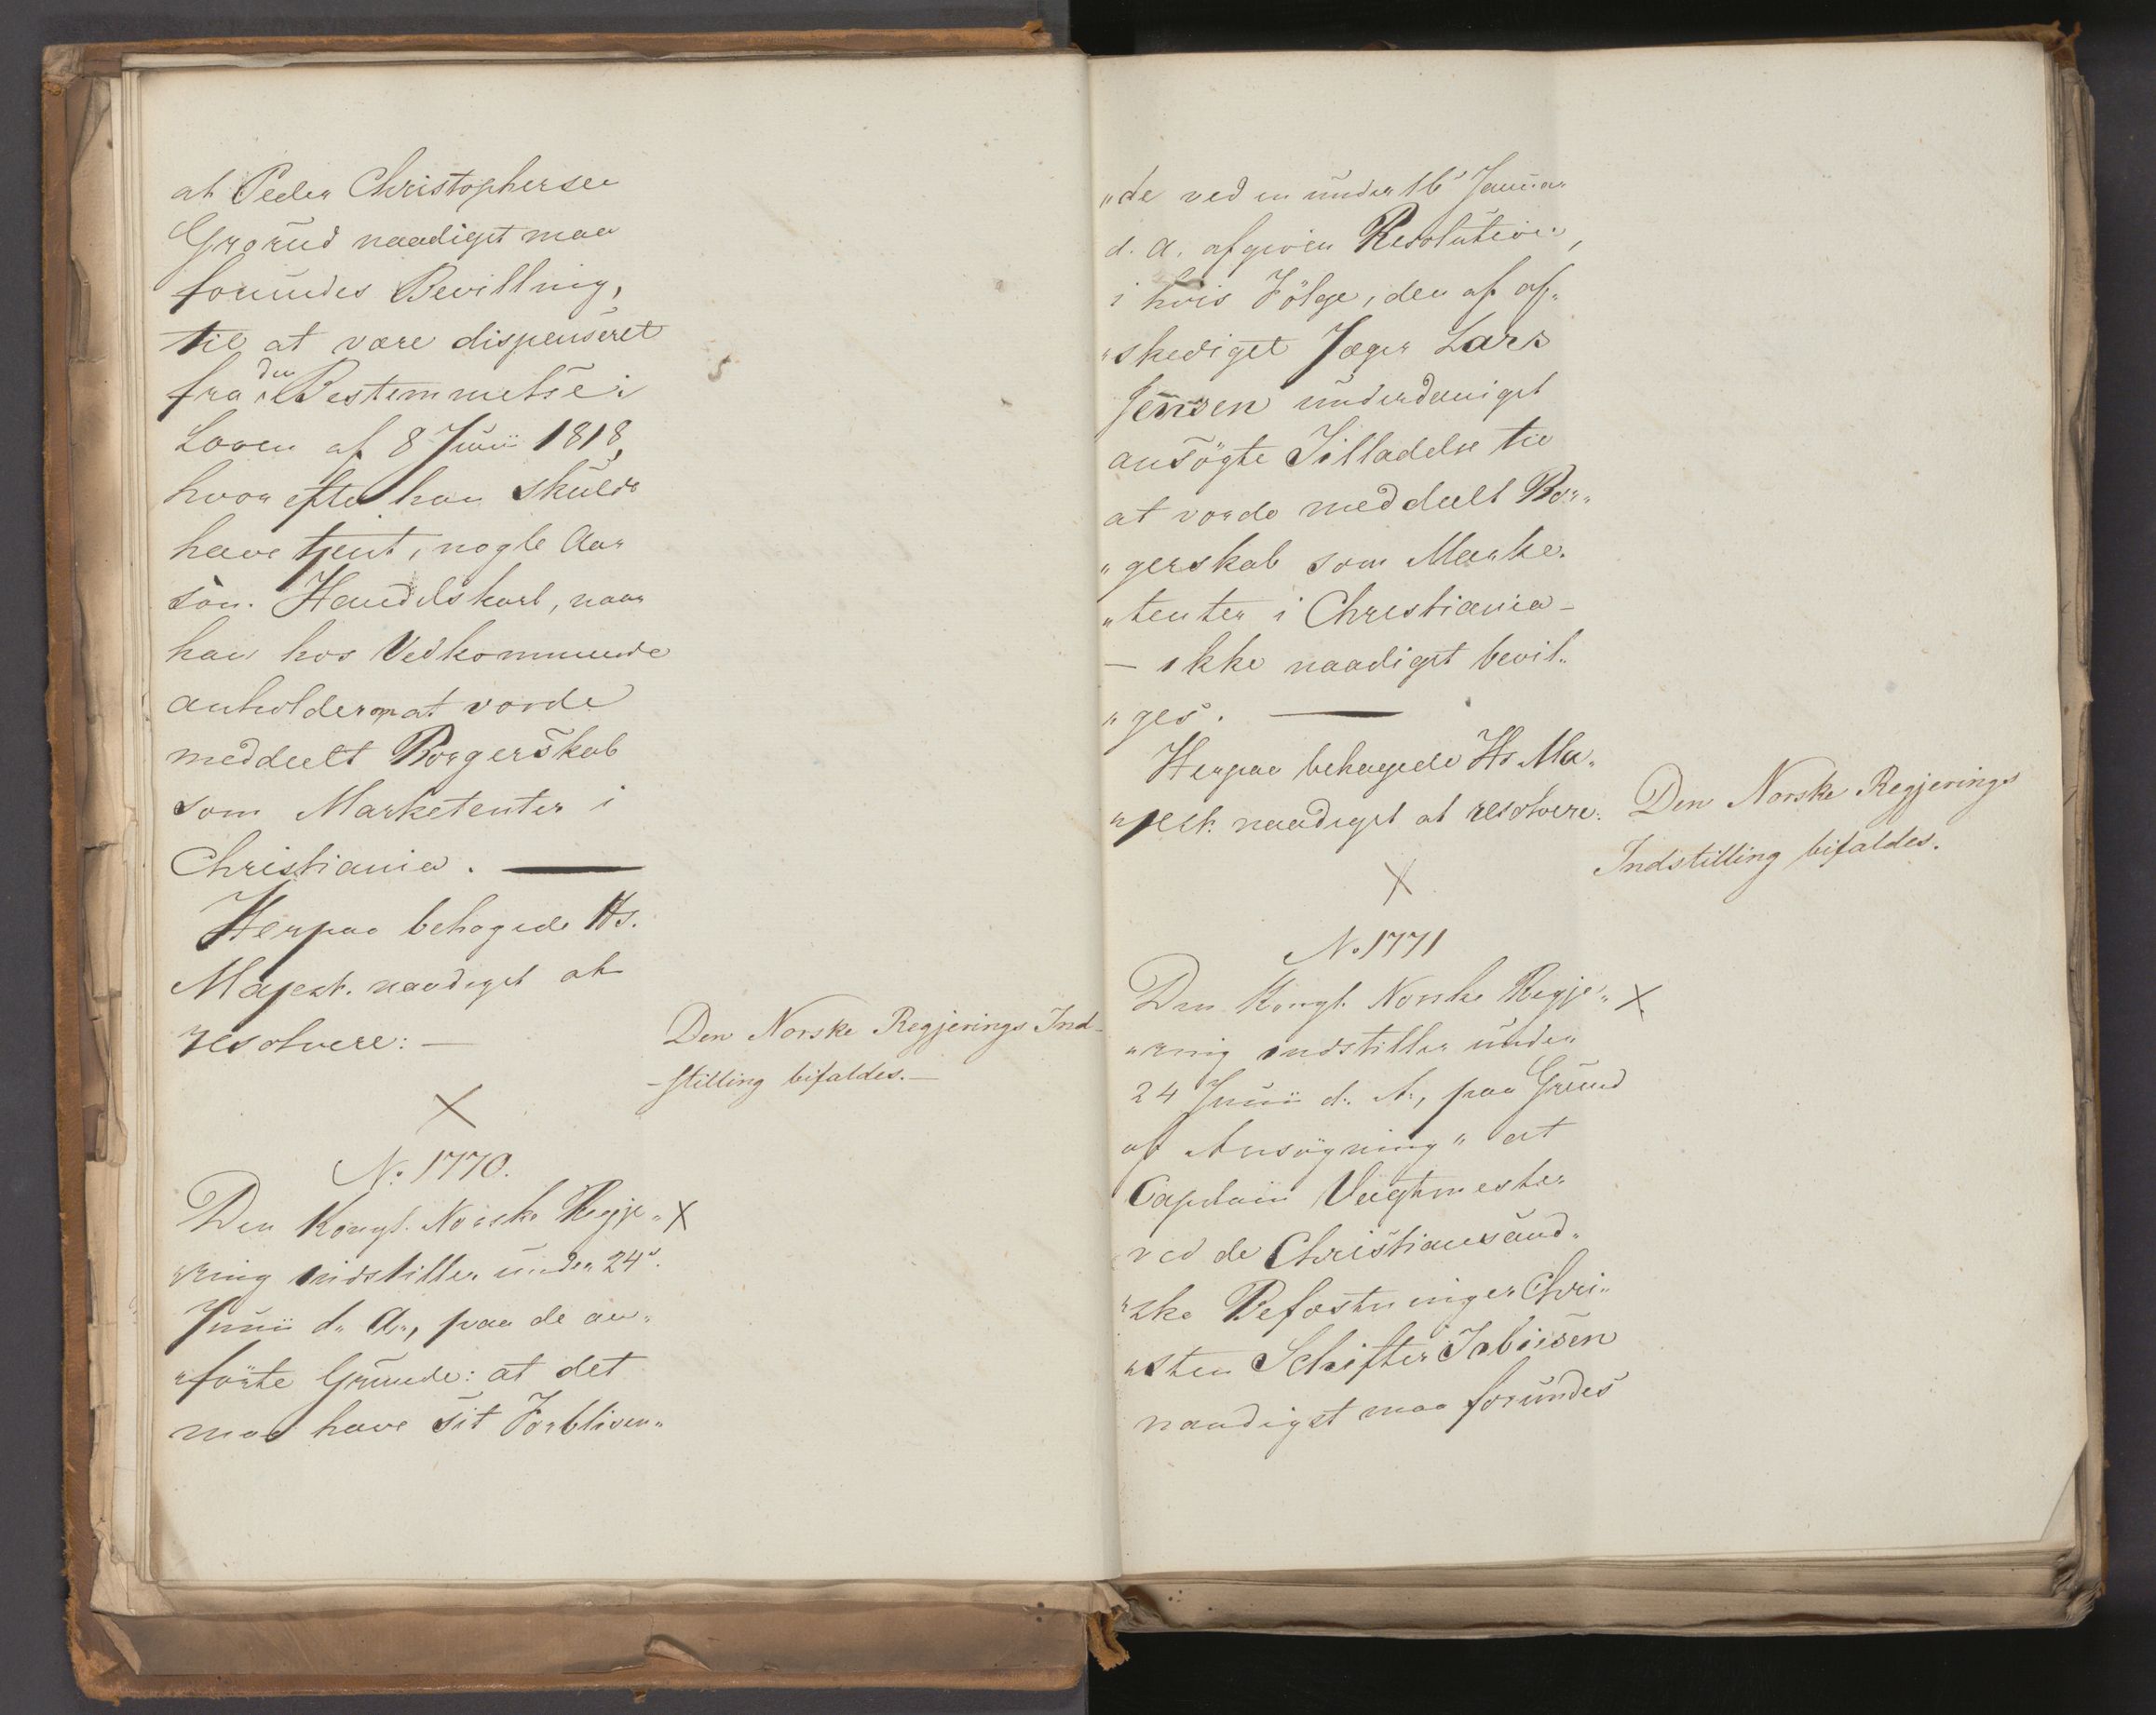 at Peder Christophersen
Grorud naadigst maa
forundes Bevilling,
til at være dispenseret
fra den Bestemmelse i
Loven af 8 Junii 1818,
hvorefter han skulde
have tjent, nogle Aar
som Handelskarl, naar
han hos Vedkommende
anholder om at vorde
meddeelt Borgerskab
som Marketenter i
Christiania. —
Herpaa behagede Hs.
Majest. naadigst at
resolvere: —
Den Norske Regjerings Ind-
-stilling bifaldes. —
X
No 1770.
Den Kongl. Norske Regje" X
"ring indstiller under 24de
Junii d. A., paa de an"
"förte Grunde: at det
maa have sit Forbliven"
"de ved en under 16de Januar
d. A. afgiven Resolution,
i hvis Fölge, den af af"
"skediget Jæger Lars
Jensen underdanigst
ansögte Tilladelse til
at vorde meddeelt Bor"
"gerskab som Marke"
"tenter i Christiania —
— ikke naadigst bevil"
"ges. —
Herpaa behagede Hs. Ma"
"jest. naadigst at resolvere:
Den Norske Regjerings
Indstilling bifaldes.
X
No 1771
Den Kongl. Norske Regje" X
"ring indstiller under
24 Junii d. A., paa Grund
af Ansögning" at
Capitain Vagtmester
ved de Christiansand"
"ske Befæstninger Chri"
"sten Schifter Tobiesen
naadigst maa forundes